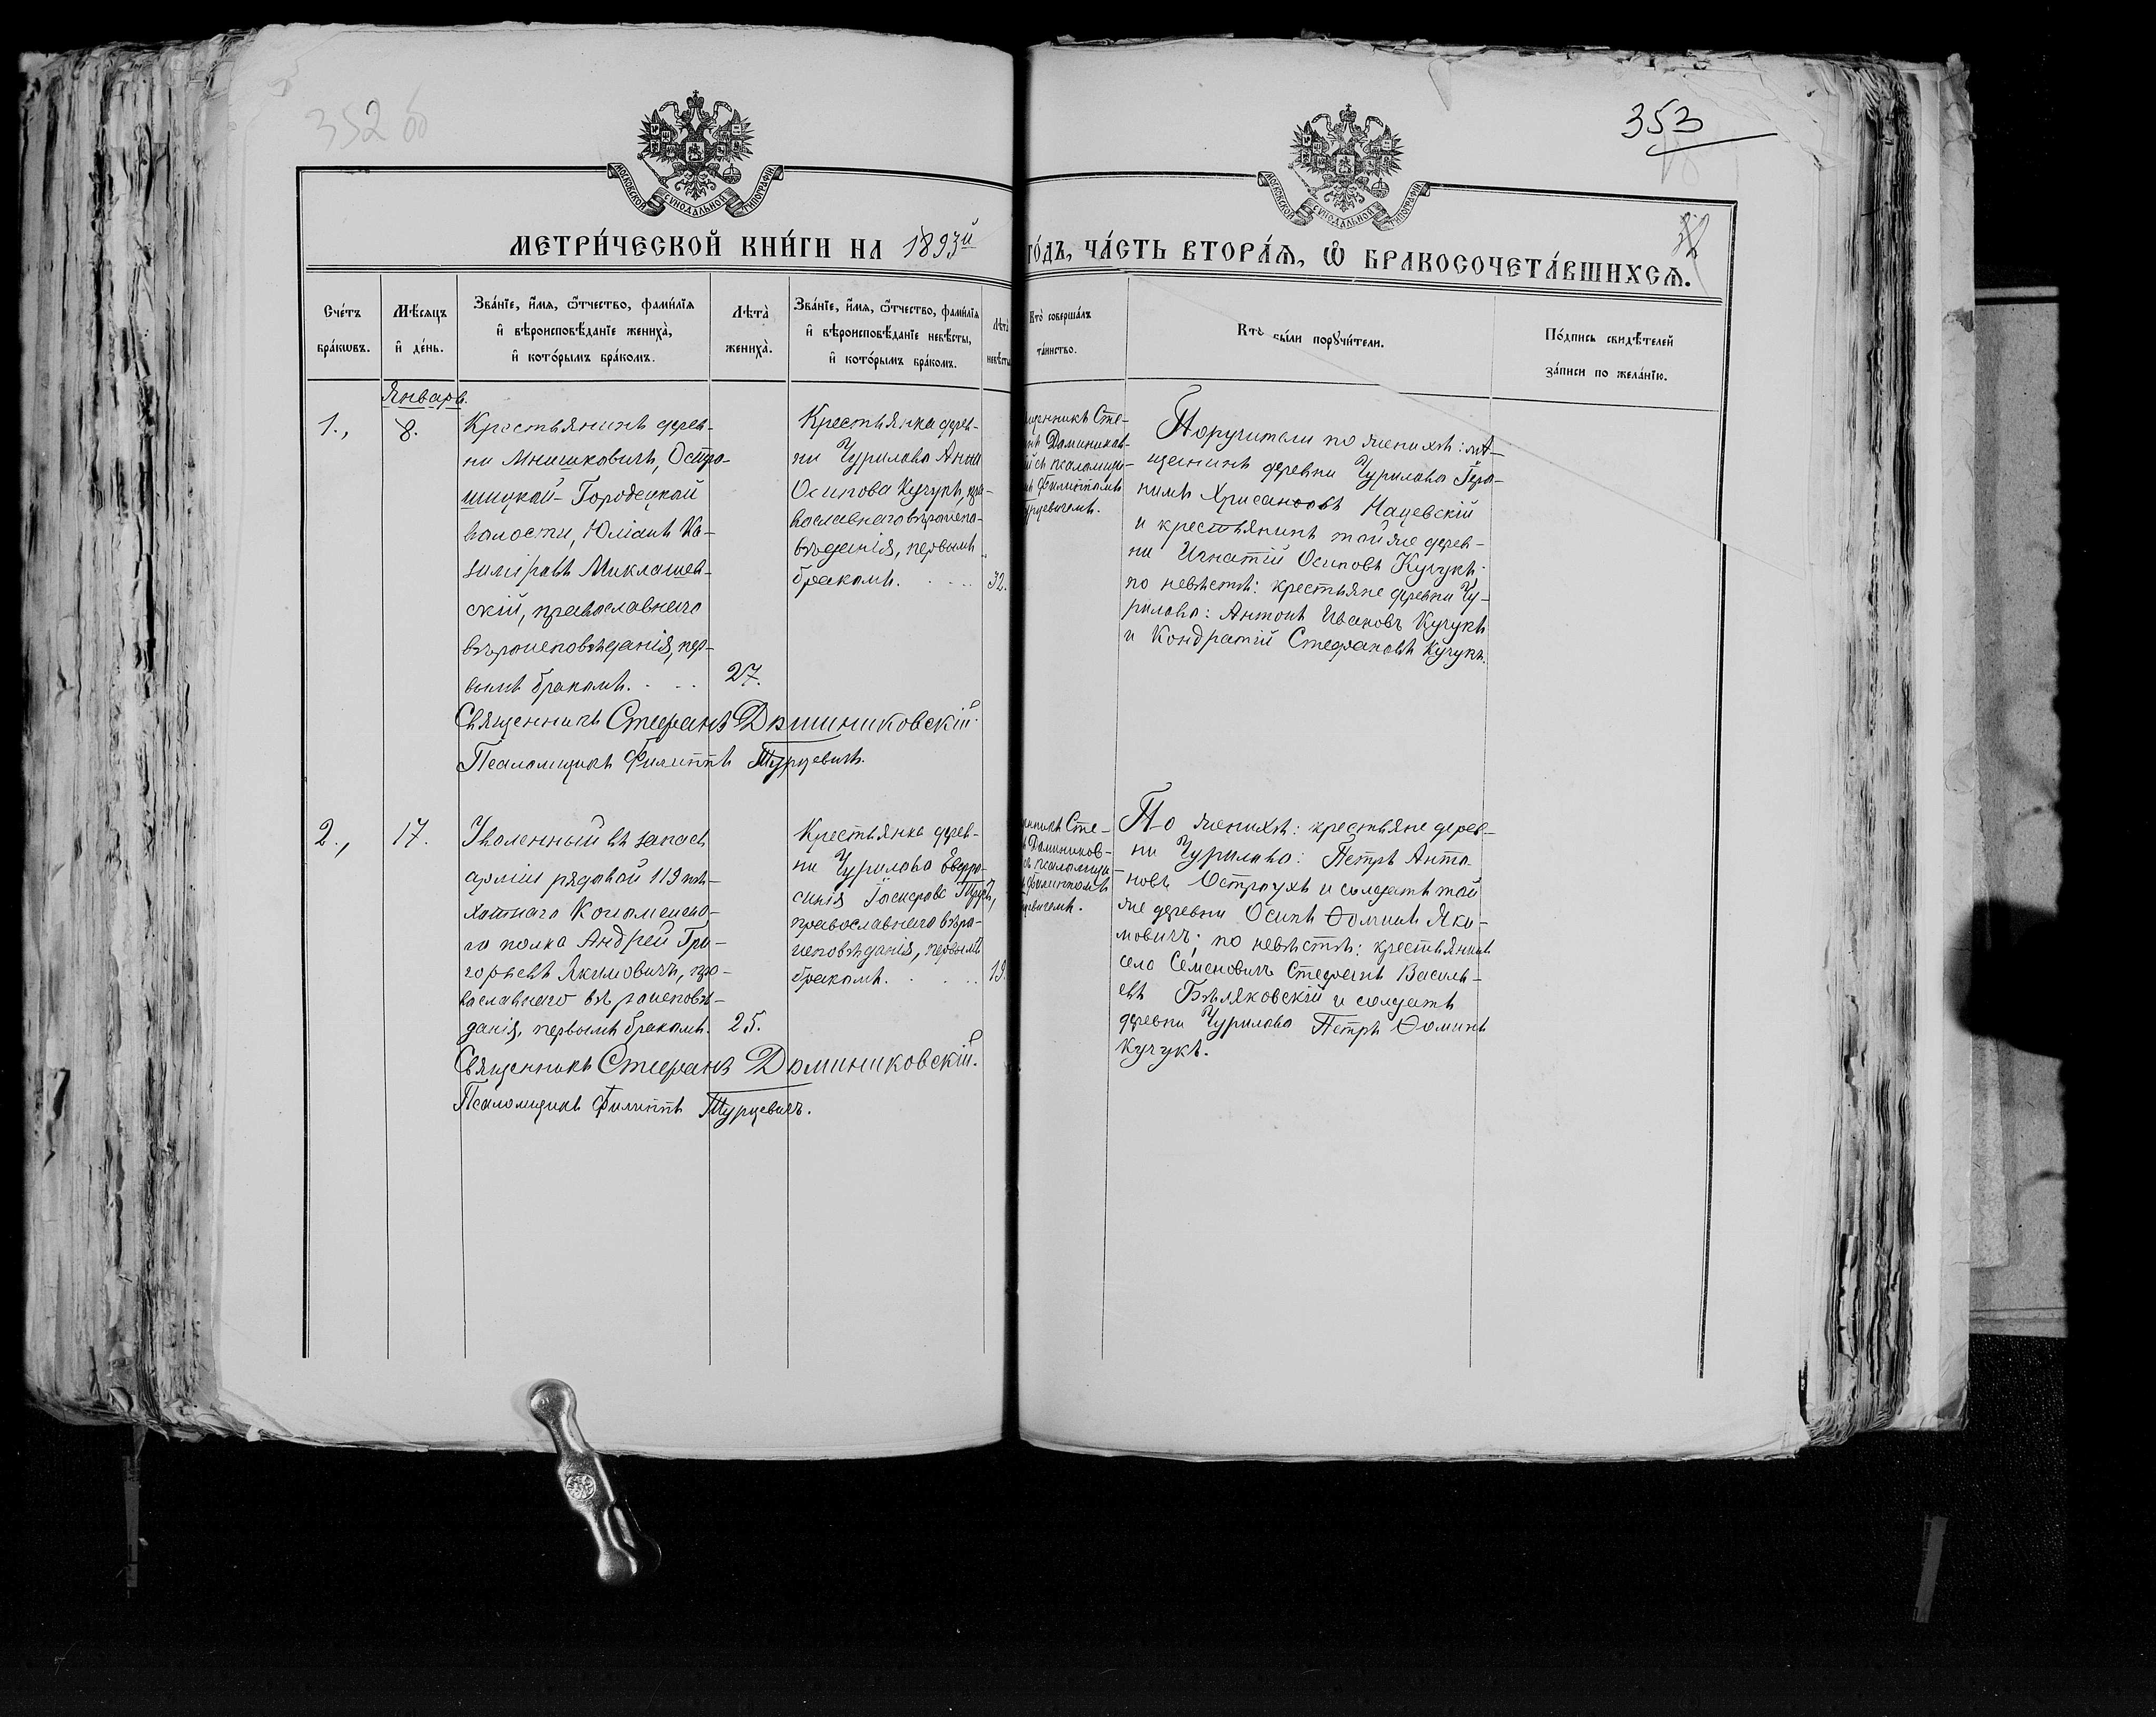 352 об
353
МОСКОВСКОЙ СѴНОДАЛЬНОЙ ТИПОГРАФІИ
МОСКОВСКОЙ СѴНОДАЛЬНОЙ ТИПОГРАФІИ
МЕТРИ́ЧЕСКОЙ КНИ́ГИ НА 1893й
ГО́ДЪ, ЧА́СТЬ ВТОРА́Ѧ, Ѡ҆ БРАКОСОЧЕТА́ВШИХСѦ.
Сче́тъ
бра́кѡвъ.
Мѣ́сяцъ
и҆ де́нь.
Зва́нїе, и҆́мя, ѻ҆́тчество, фами́лїя
и҆ вѣроисповѣ́данїе жениха̀,
и҆ кото́рымъ бра́комъ.
Лѣта̀
жениха̀.
Зва́нїе, и҆́мя, ѻ҆́тчество, фами́лїя
и҆ вѣроисповѣ́данїе невѣ́сты,
и҆ кото́рымъ бра́комъ.
Лѣта̀
невѣ́сты
Кто̀ соверша́лъ
та́инство.
Кто̀ бы́ли порꙋчи́тели.
По́дпись свидѣ́телей
за́писи по жела́нїю.
Январь.
1.,
8.
Крестьянинъ дерев-
ни Мнишковичъ, Остро-
шицкой-Городецкой
волости, Юліанъ Ка-
зиміровъ Миклашев-
скій, православнаго
вѣроисповѣданія, пер-
вымъ бракомъ. . . .
27.
Крестьянка дерев-
ни Чурилова Анна
Осипова Кучукъ, пра-
вославнаго вѣроиспо-
вѣданія, первымъ
бракомъ. . . . .
32.
щенникъ Сте-
нъ Домиников-
й съ псаломщи-
мъ Филиппомъ
урцевичемъ.
Поручители по женихѣ: мѣ-
щанинъ деревни Чурилова Геро-
нимъ Хрисанѳовъ Нацевскій
и крестьянинъ той же дерев-
ни Игнатій Осиповъ Кучукъ;
по невѣстѣ: крестьяне деревни Чу-
рилова: Антонъ Ивановъ Кучукъ
и Кондратій Стефановъ Кучукъ.
Священникъ Стефанъ Доминиковскій.
Псаломщикъ Филиппъ Турцевичъ.
2.,
17.
Уволенный въ запасъ
арміи рядовой 119 пѣ-
хотнаго Коломенска-
го полка Андрей Гри-
горьевъ Якимовичъ, пра-
вославнаго вѣроисповѣ-
данія, первымъ бракомъ.
25.
Крестьянка дерев-
ни Чурилова Евфро-
синія
православнаго вѣро-
исповѣданія, первымъ
бракомъ. . . . .
19.
енникъ Сте-
ъ Домиников-
съ псаломщи-
ъ Филиппомъ
рцевичемъ.
По женихѣ: крестьяне дерев-
ни Чурилова: Петръ Анто-
новъ Остроухъ и солдатъ той
же деревни Осипъ Ѳоминъ Яки-
мовичъ; по невѣстѣ: крестьянинъ
села Семеновичъ Стефанъ Василь-
евъ Бѣляковскій и солдатъ
деревни Чурилова Петръ Ѳоминъ
Кучукъ.
Священникъ Стефанъ Доминиковскій.
Псаломщикъ Филиппъ Турцевичъ.